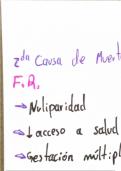 2da Causa de Muert
F.R.
→ Nuliparidad
→ ↓ acceso a salud
→ Gestación múltipl